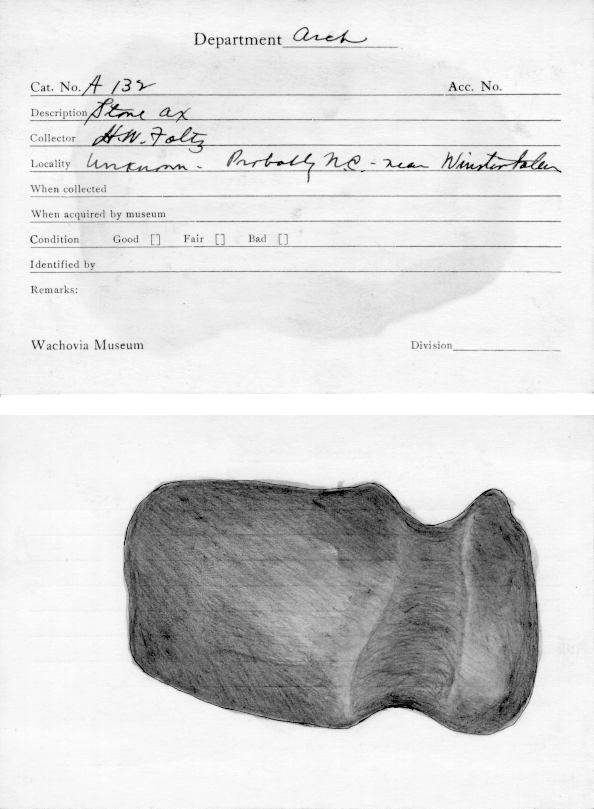 Department Arch
Cat. No. A 132 Acc. No.
Description Stone ax
Collector H.W. Foltz
Locality Unknown - Probably N.C. - near Winston Salem
When collected
When acquired by museum
Condition Good [] Fair [] Bad []
Identified by
Remarks:
Wachovia Museum Division